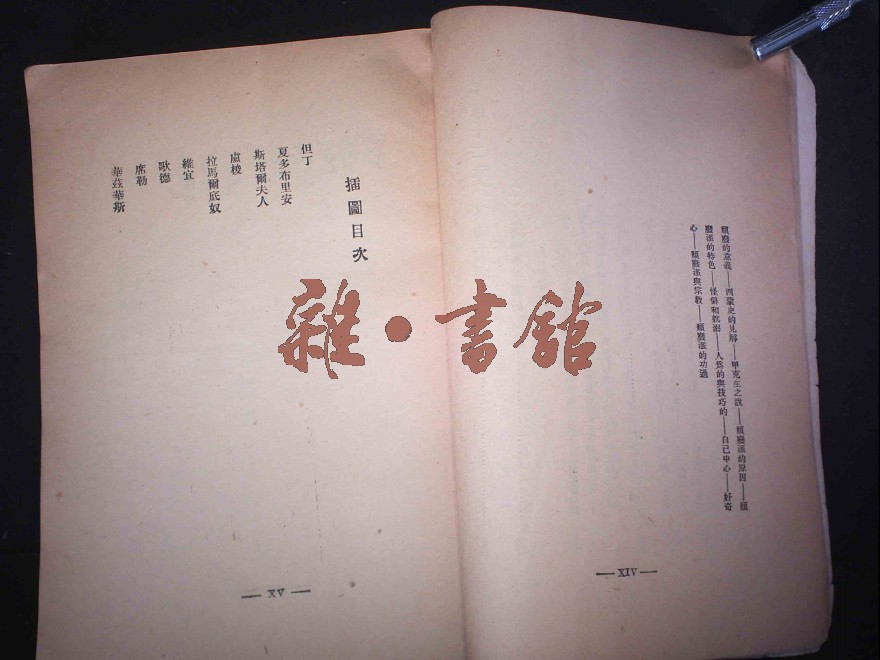 頹廢的意義——西蒙史的見解——甲克生之說——頹廢派的原因——頹
廢派的特色——怪僻和乾溺——人為的與技巧的——自己中心——好奇
心——頹廢派與宗教——頹廢派的功過
—XIV—
插圖目次
但丁
夏多布里安
斯塔爾夫人
盧梭
拉馬爾底奴
維宜
歌德
席勒
華茲華斯
—XV—
雜·書館